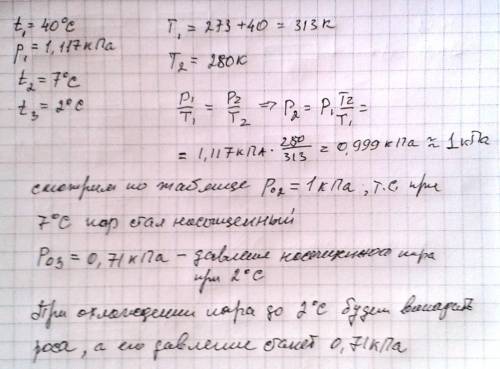 t₁ = 40°C T₁ = 273 + 40 = 313 K
p₁ = 1,117 кПа
t₂ = 7°C T₂ = 280 К
t₃ = 2°C p₁/T₁ = p₂/T₂ => p₂ = p₁ T₂/T₁ =
= 1,117 кПа · 280/313 = 0,999 кПа ≈ 1 кПа
смотрим по таблице p₀₂ = 1 кПа, т.е при
7°C пар стал насыщенный
p₀₃ = 0,71 кПа – давление насыщенного пара
при 2°C
При охлаждении пара до 2°C будет выпадать
роса, а его давление станет 0,71 кПа